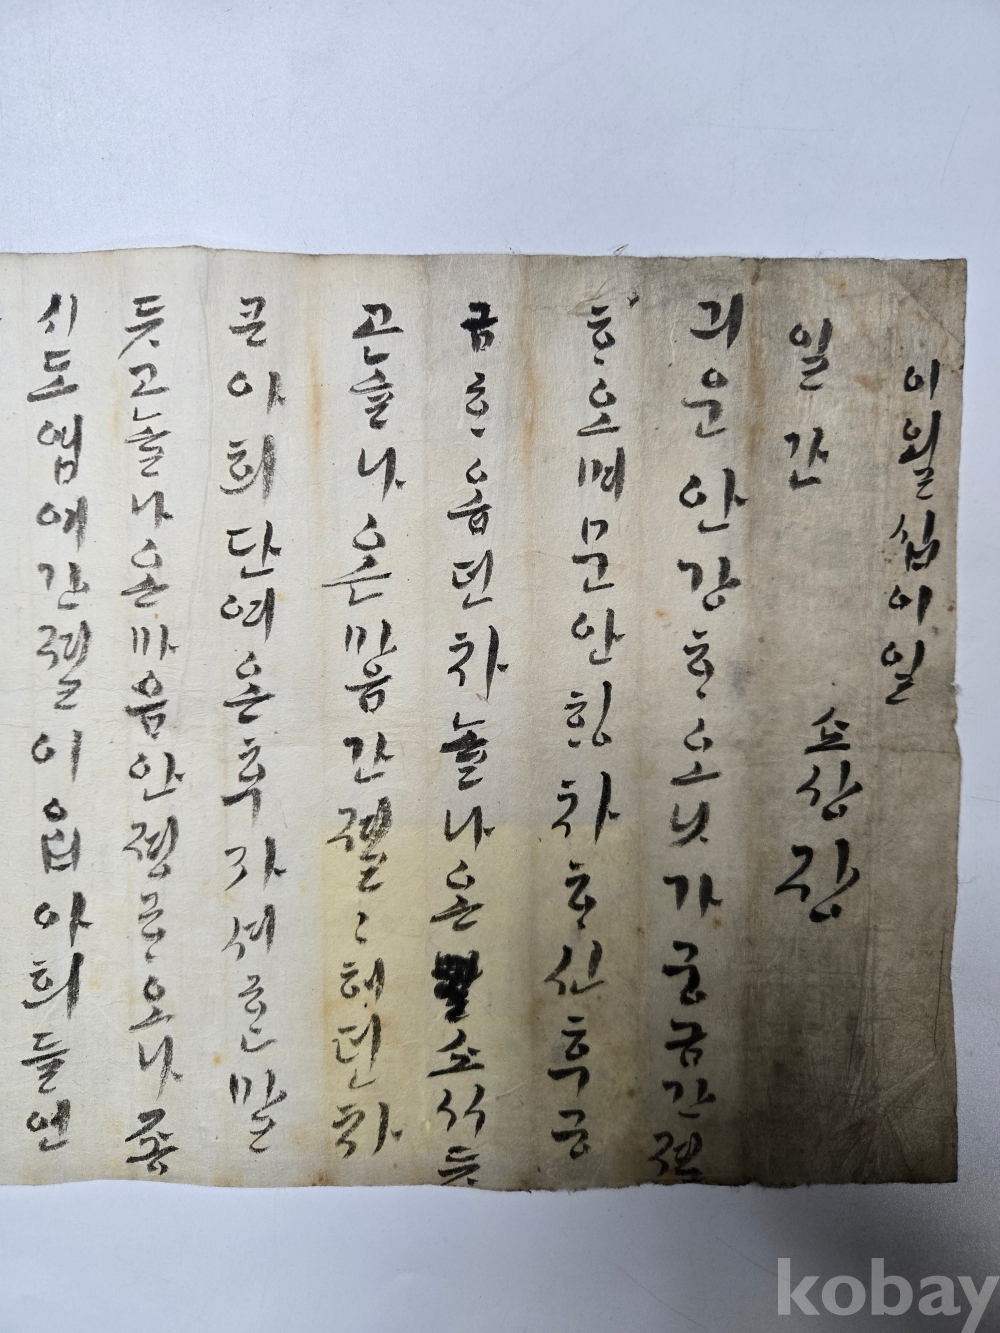 이월십이일
일간 쇼상장
긔운안강ᄒᆞ오닛가궁금간졀
ᄒᆞ오며문안ᄒᆡᆼ차ᄒᆞ신후궁
금ᄒᆞ옵던차놀나온쇼식듯
고놀나온마음간졀간졀ᄒᆡ던차
큰아희단여온후자셰ᄒᆞᆫ말
듯고놀나온마음안졍
시도
간졀이
아희들언
kobay